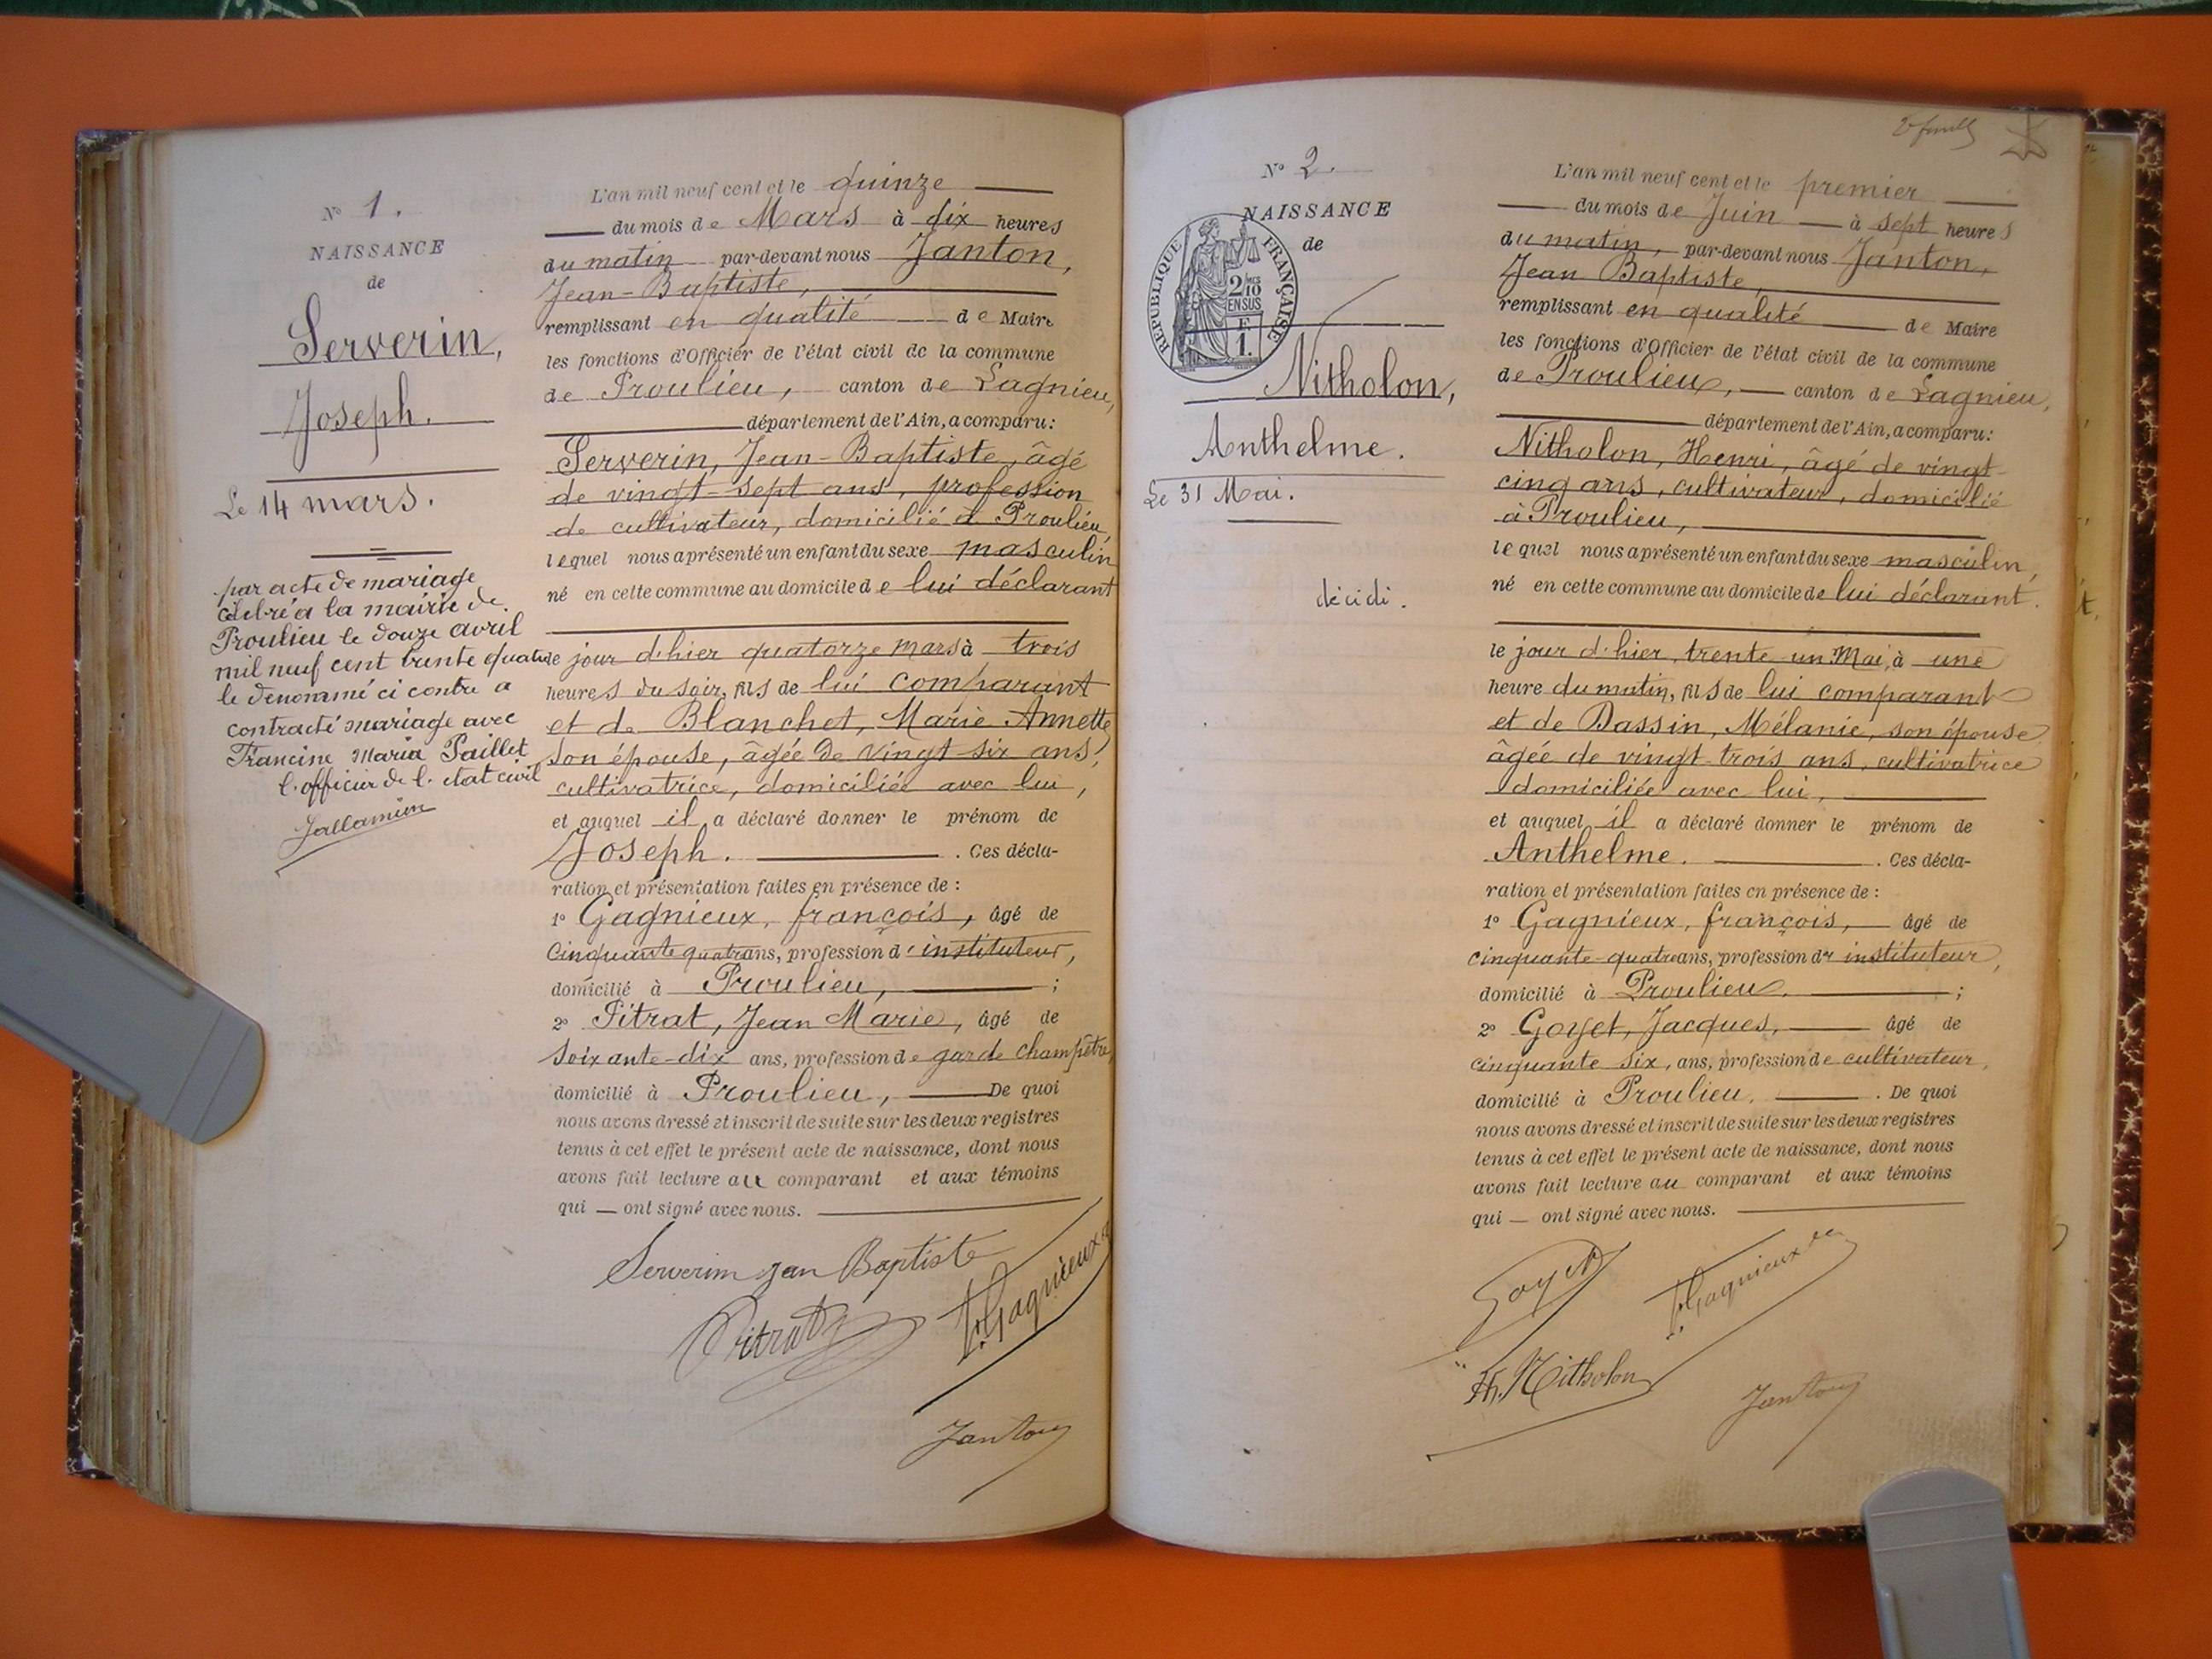 N° 1.
NAISSANCE
de
Serverin,
Joseph.
Le 14 mars.
par acte de mariage
célébré à la mairie de
Proulieu le douze avril
mil neuf cent trente quatre
le dénommé ci contre a
contracté mariage avec
Francine Maria Paillet
l'officier de l'etat civil
Jallamion
L'an mil neuf cent et le quinze
du mois de Mars à dix heures
du matin par-devant nous Janton,
Jean-Baptiste,
remplissant en qualité de Maire
les fonctions d'Officier de l'état civil de la commune
de Proulieu, canton de Lagnieu,
département de l'Ain, a comparu:
Serverin, Jean-Baptiste, âgé
de vingt-sept ans, profession
de cultivateur, domicilié à Proulieu,
lequel nous a présenté un enfant du sexe masculin
né en cette commune au domicile de lui déclarant
le jour d'hier quatorze mars à trois
heures du soir, fils de lui comparant
et de Blanchet, Marie Annette
son épouse, âgée de vingt-six ans,
cultivatrice, domiciliée avec lui,
et auquel il a déclaré donner le prénom de
Joseph. . Ces décla-
ration et présentation faites en présence de :
1° Gagnieux, françois, âgé de
cinquante quatre ans, profession d' instituteur,
domicilié à Proulieu, ;
2° Pitrat, Jean Marie, âgé de
soixante-dix ans, profession de garde champêtre,
domicilié à Proulieu, De quoi
nous avons dressé et inscrit de suite sur les deux registres
tenus à cet effet le présent acte de naissance, dont nous
avons fait lecture au comparant et aux témoins
qui — ont signé avec nous.
Serverin jan Baptiste
Pitrat
f. Gagnieux
Janton
N° 2.
NAISSANCE
de
RÉPUBLIQUE FRANÇAISE
2/10
EN SUS
F
1.
Nitholon,
Anthelme.
Le 31 Mai.
décidi.
L'an mil neuf cent et le premier
du mois de Juin à sept heures
du matin, par-devant nous Janton,
Jean Baptiste,
remplissant en qualité de Maire
les fonctions d'Officier de l'état civil de la commune
de Proulieu, canton de Lagnieu,
département de l'Ain, a comparu:
Nitholon, Henri, âgé de vingt-
cinq ans, cultivateur, domicilié
à Proulieu,
lequel nous a présenté un enfant du sexe masculin,
né en cette commune au domicile de lui déclarant.
le jour d'hier, trente-un Mai, à une
heure du matin, fils de lui comparant
et de Dassin, Mélanie, son épouse
âgée de vingt-trois ans, cultivatrice
domiciliée avec lui,
et auquel il a déclaré donner le prénom de
Anthelme. . Ces décla-
ration et présentation faites en présence de :
1° Gagnieux, françois, âgé de
cinquante-quatre ans, profession d' instituteur,
domicilié à Proulieu. ;
2° Goyet, Jacques, âgé de
cinquante six, ans, profession de cultivateur,
domicilié à Proulieu. . De quoi
nous avons dressé et inscrit de suite sur les deux registres
tenus à cet effet le présent acte de naissance, dont nous
avons fait lecture au comparant et aux témoins
qui — ont signé avec nous.
Goyet
f. Gagnieux
H. Nitholon
Janton